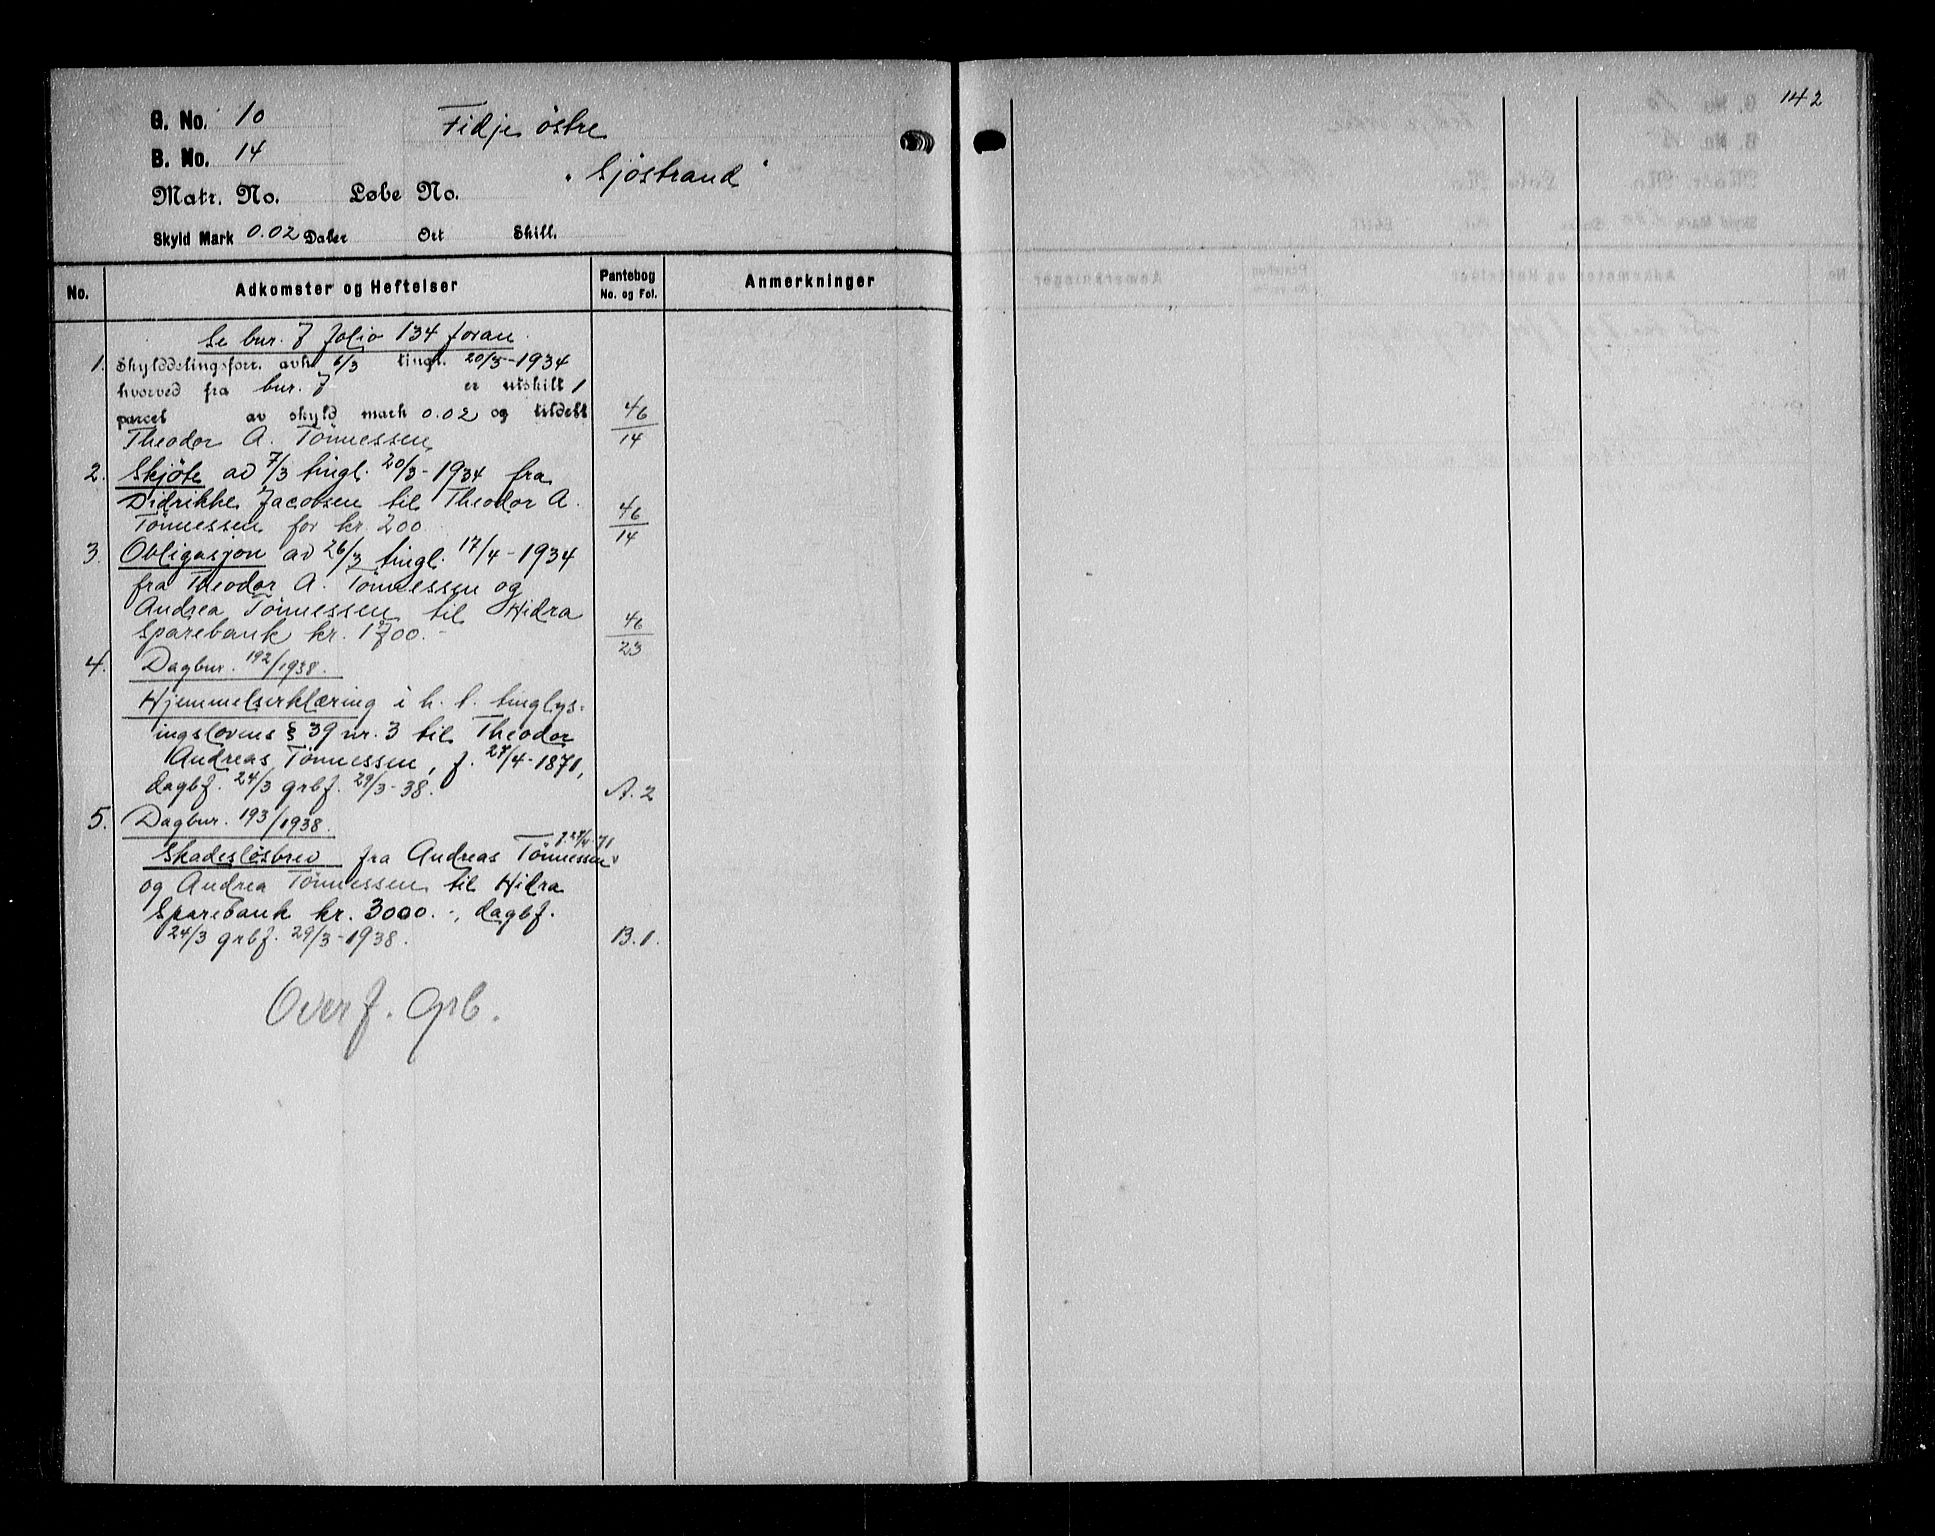 G. No. 10
Fidje østre
B. No. 14
"Sjöstrand"
Matr. No. Løbe No.
Skyld Mark 0.02 Daler Ort Skill.
No. Adkomster og Heftelser Pantebog No. og Fol. Anmerkninger
Se bnr. 7 folio 134 foran.
1. Skylddelingsforr. avh. 6/3 tingl. 20/3-1934
hvorved fra bnr. 7 er utskilt 1
parcel av skyld mark 0.02 og tildelt 46
Theodor A. Tönnessen 14
2. Skjöte av 7/3 tingl. 20/3-1934 fra
Didrikke Jacobsen til Theodor A. 46
Tönnessen for kr. 200 14
3. Obligasjon av 26/3 tingl. 17/4-1934
fra Theodor A. Tönnessen og
Andrea Tönnessen til Hidra 46
Sparebank kr. 1700.- 23
4. Dagbnr. 192/1938.
Hjemmelserklæring i h. t. tinglys-
ingslovens § 39 nr. 3 til Theodor
Andreas Tönnessen, f. 27/4-1871,
dagbf. 24/3 grbf. 29/3-38. A. 2
5. Dagbnr. 193/1938.
f. 27/4-71
Skadeslösbrev fra Andreas Tönnessen
og Andrea Tönnessen til Hidra
Sparebank kr. 3000.-, dagbf.
24/3 grbf. 29/3-1938. B. 1.
Overf. grb.
142